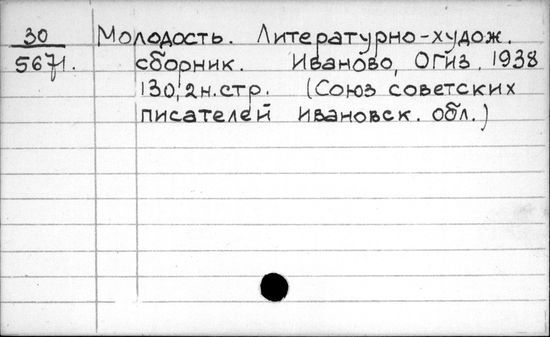 30
5671.
Молодость. Литературно-худож.
сборник. Иваново, Огиз, 1938
130, 2н.стр. (Союз советских
писателей Ивановск. обл.)